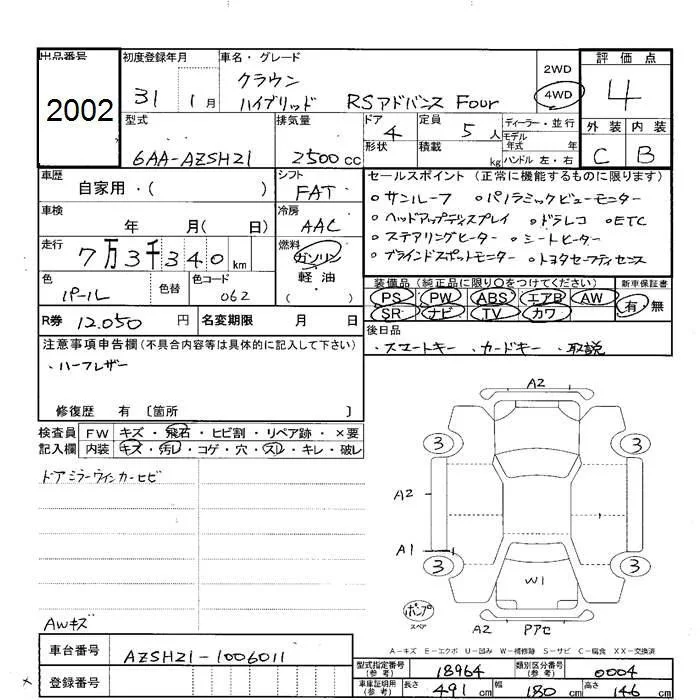 出品番号
2002
初度登録年月
31 1月
車名・グレード
クラウン
ハイブリッド RSアドバンス Four
2WD
4WD
評価点
4
外装 内装
C B
型式
6AA-AZSH21
排気量
2500cc
ドア
4
形状
定員
5人
積載
kg
ディーラー・並行
モデル年式 年
ハンドル 左・右
車歴
自家用・( )
シフト
FAT
車検
年 月( 日)
冷房
AAC
走行
7万3千340km
燃料
ガソリン
軽油
( )
色
パール
色替
色コード
062
R券 12.050円
名変期限 月 日
セールスポイント(正常に機能するものに限ります)
○サンルーフ ○パノラミックビューモニター
○ヘッドアップディスプレイ ○ドラレコ ○ETC
○ステアリングヒーター ○シートヒーター
○ブラインドスポットモニター ○トヨタセーフティセンス
装備品(純正品に限り○をつけてください)
PS PW ABS エアB AW
SR ナビ TV カワ
新車保証書
有・無
後日品
・スマートキー ・カードキー ・取説
注意事項申告欄(不具合内容等は具体的に記入して下さい)
・ハーフレザー
修復歴 有 〔箇所 〕
検査員記入欄
FW キズ・飛石・ヒビ割・リペア跡・×要
内装 キズ・汚レ・コゲ・穴・スレ・キレ・破レ
ドアミラーウィンカーヒビ
AWキズ
A2
3 3
A2
A1
3 3
W1
ポンプ
スペア
A2 Pアセ
A-キズ E-エクボ U-凹み W-補修跡 S-サビ C-腐食 XX-交換済
車台番号
AZSH21-1006011
登録番号
型式指定番号(参考) 18964
類別区分番号(参考) 0004
車庫証明用(参考) 長さ 491cm 幅 180cm 高さ 146cm